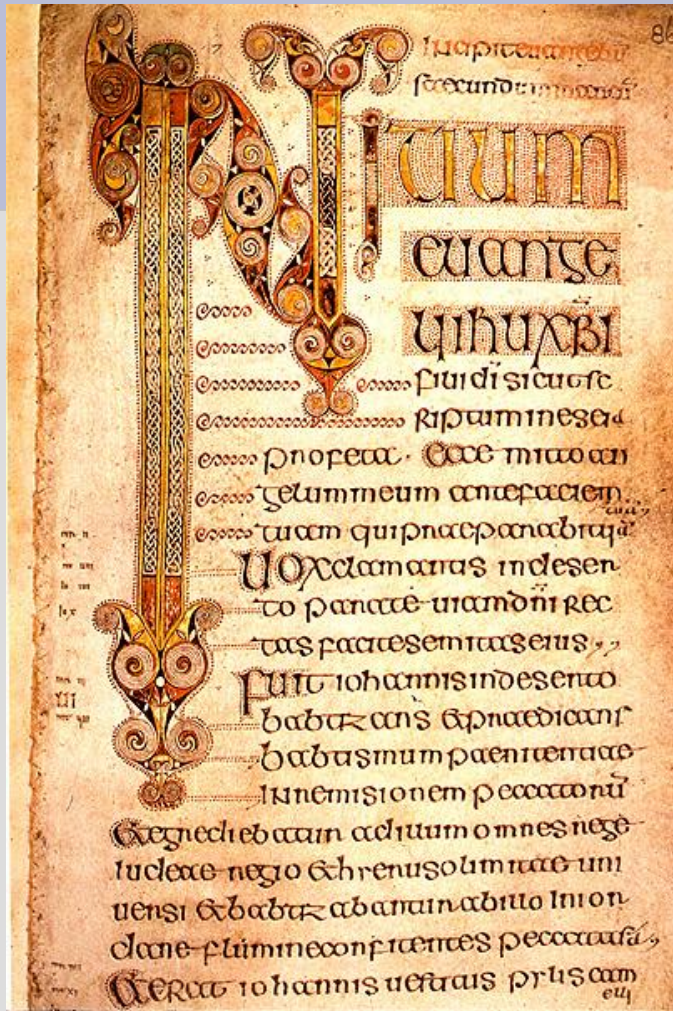 86
INITIUM
euange
lii ihu xpi
filii di sicut sc
riptum in esaia
profeta. Ecce mitto an
gelum meum ante faciem
tuam qui praeparabit uiã tuã
Uox clamantis in deser
to parate uiam dni rec
tas facite semitas eius
Fuit iohannis in deserto
babtizans & praedicans
babtismum paenitentiae
in remisionem peccatorũ
& egrediebatur ad illum omnes
iudeae regio & hierusolimitae uni
uersi & babtizabantur ab illo in ior
dane flumine confitentes peccata sua
& erat iohannis uestitus pylis cam
eli